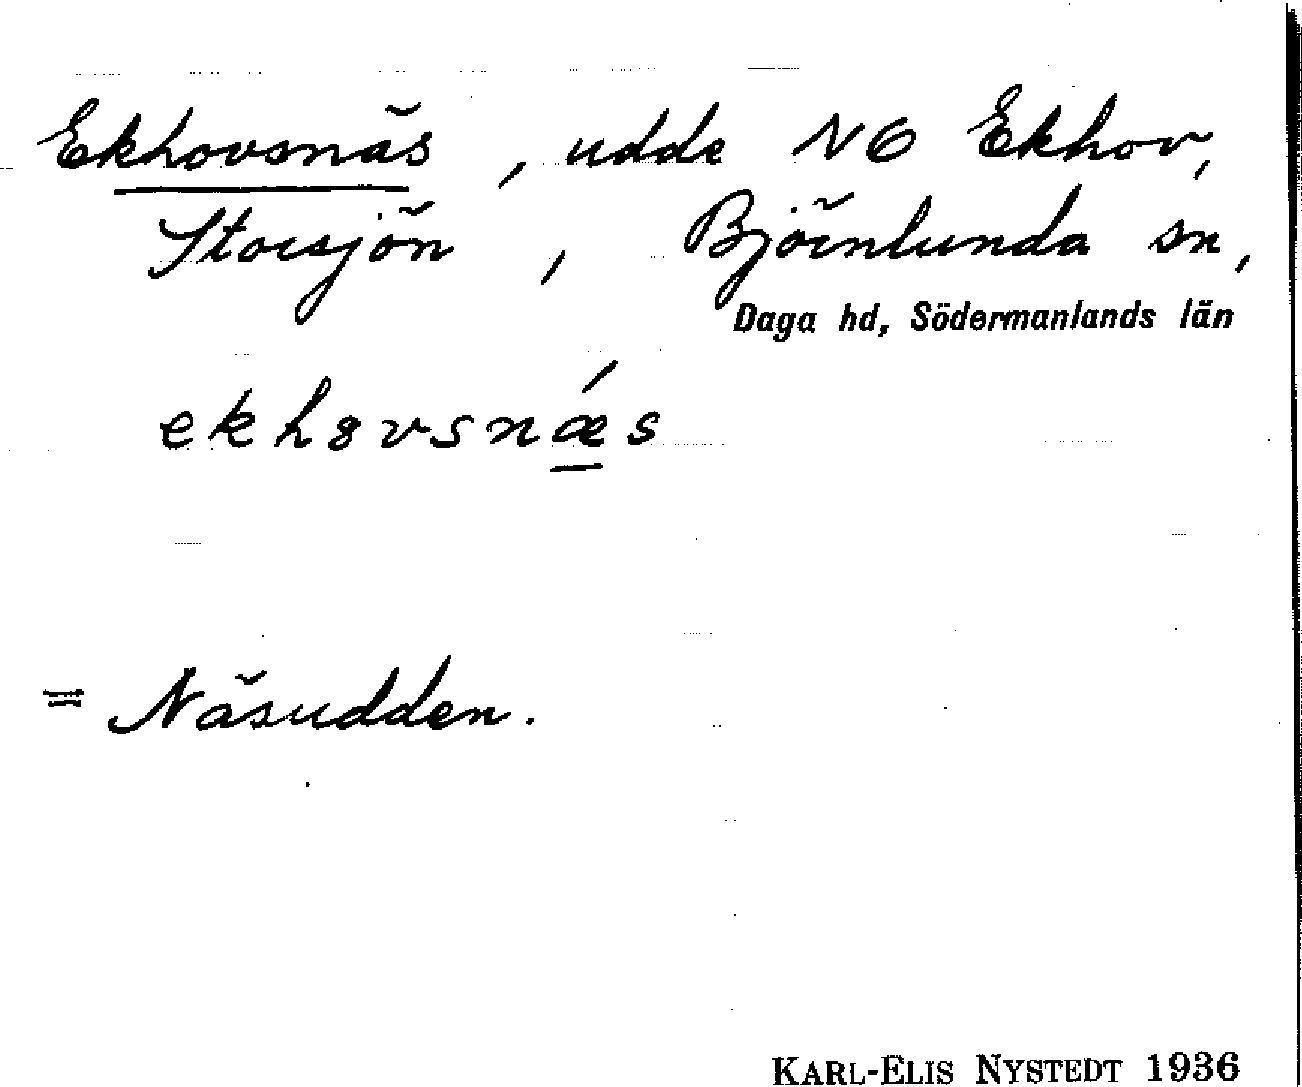 Ekhovsnäs, udde NO Ekhov,
Storsjön, Björnlunda sn,
Daga hd, Södermanlands län
ekh8vsnǽs
= Näsudden.
KARL-ELIS NYSTEDT 1936